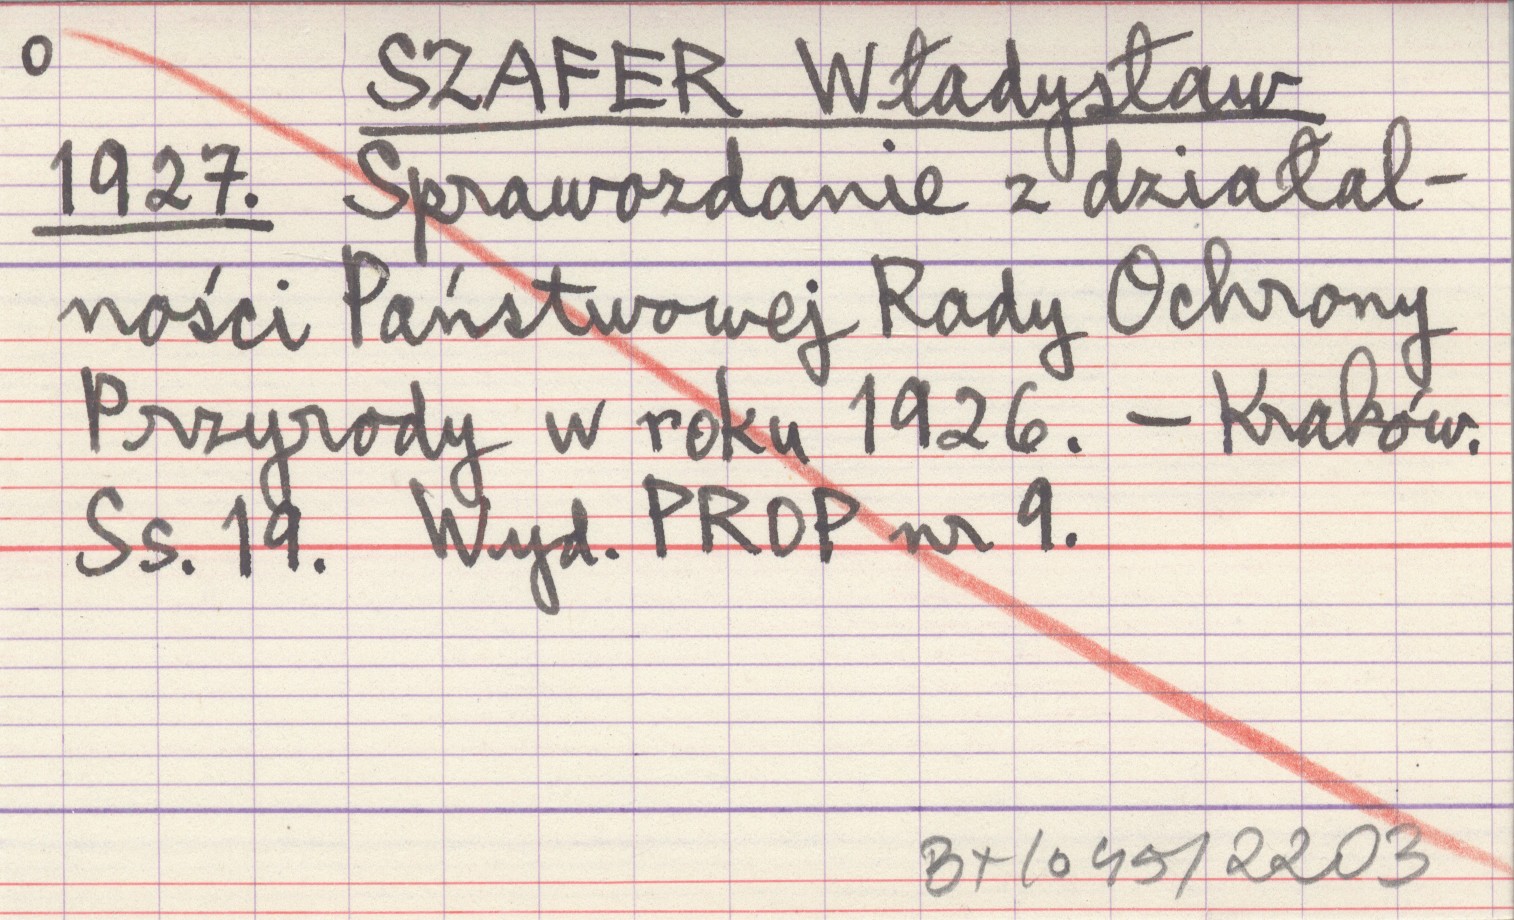 O SZAFER Władysław
1927. Sprawozdanie z działal-
ności Państwowej Rady Ochrony
Przyrody w roku 1926. – Kraków.
Ss. 19. Wyd. PROP nr 9.
2203